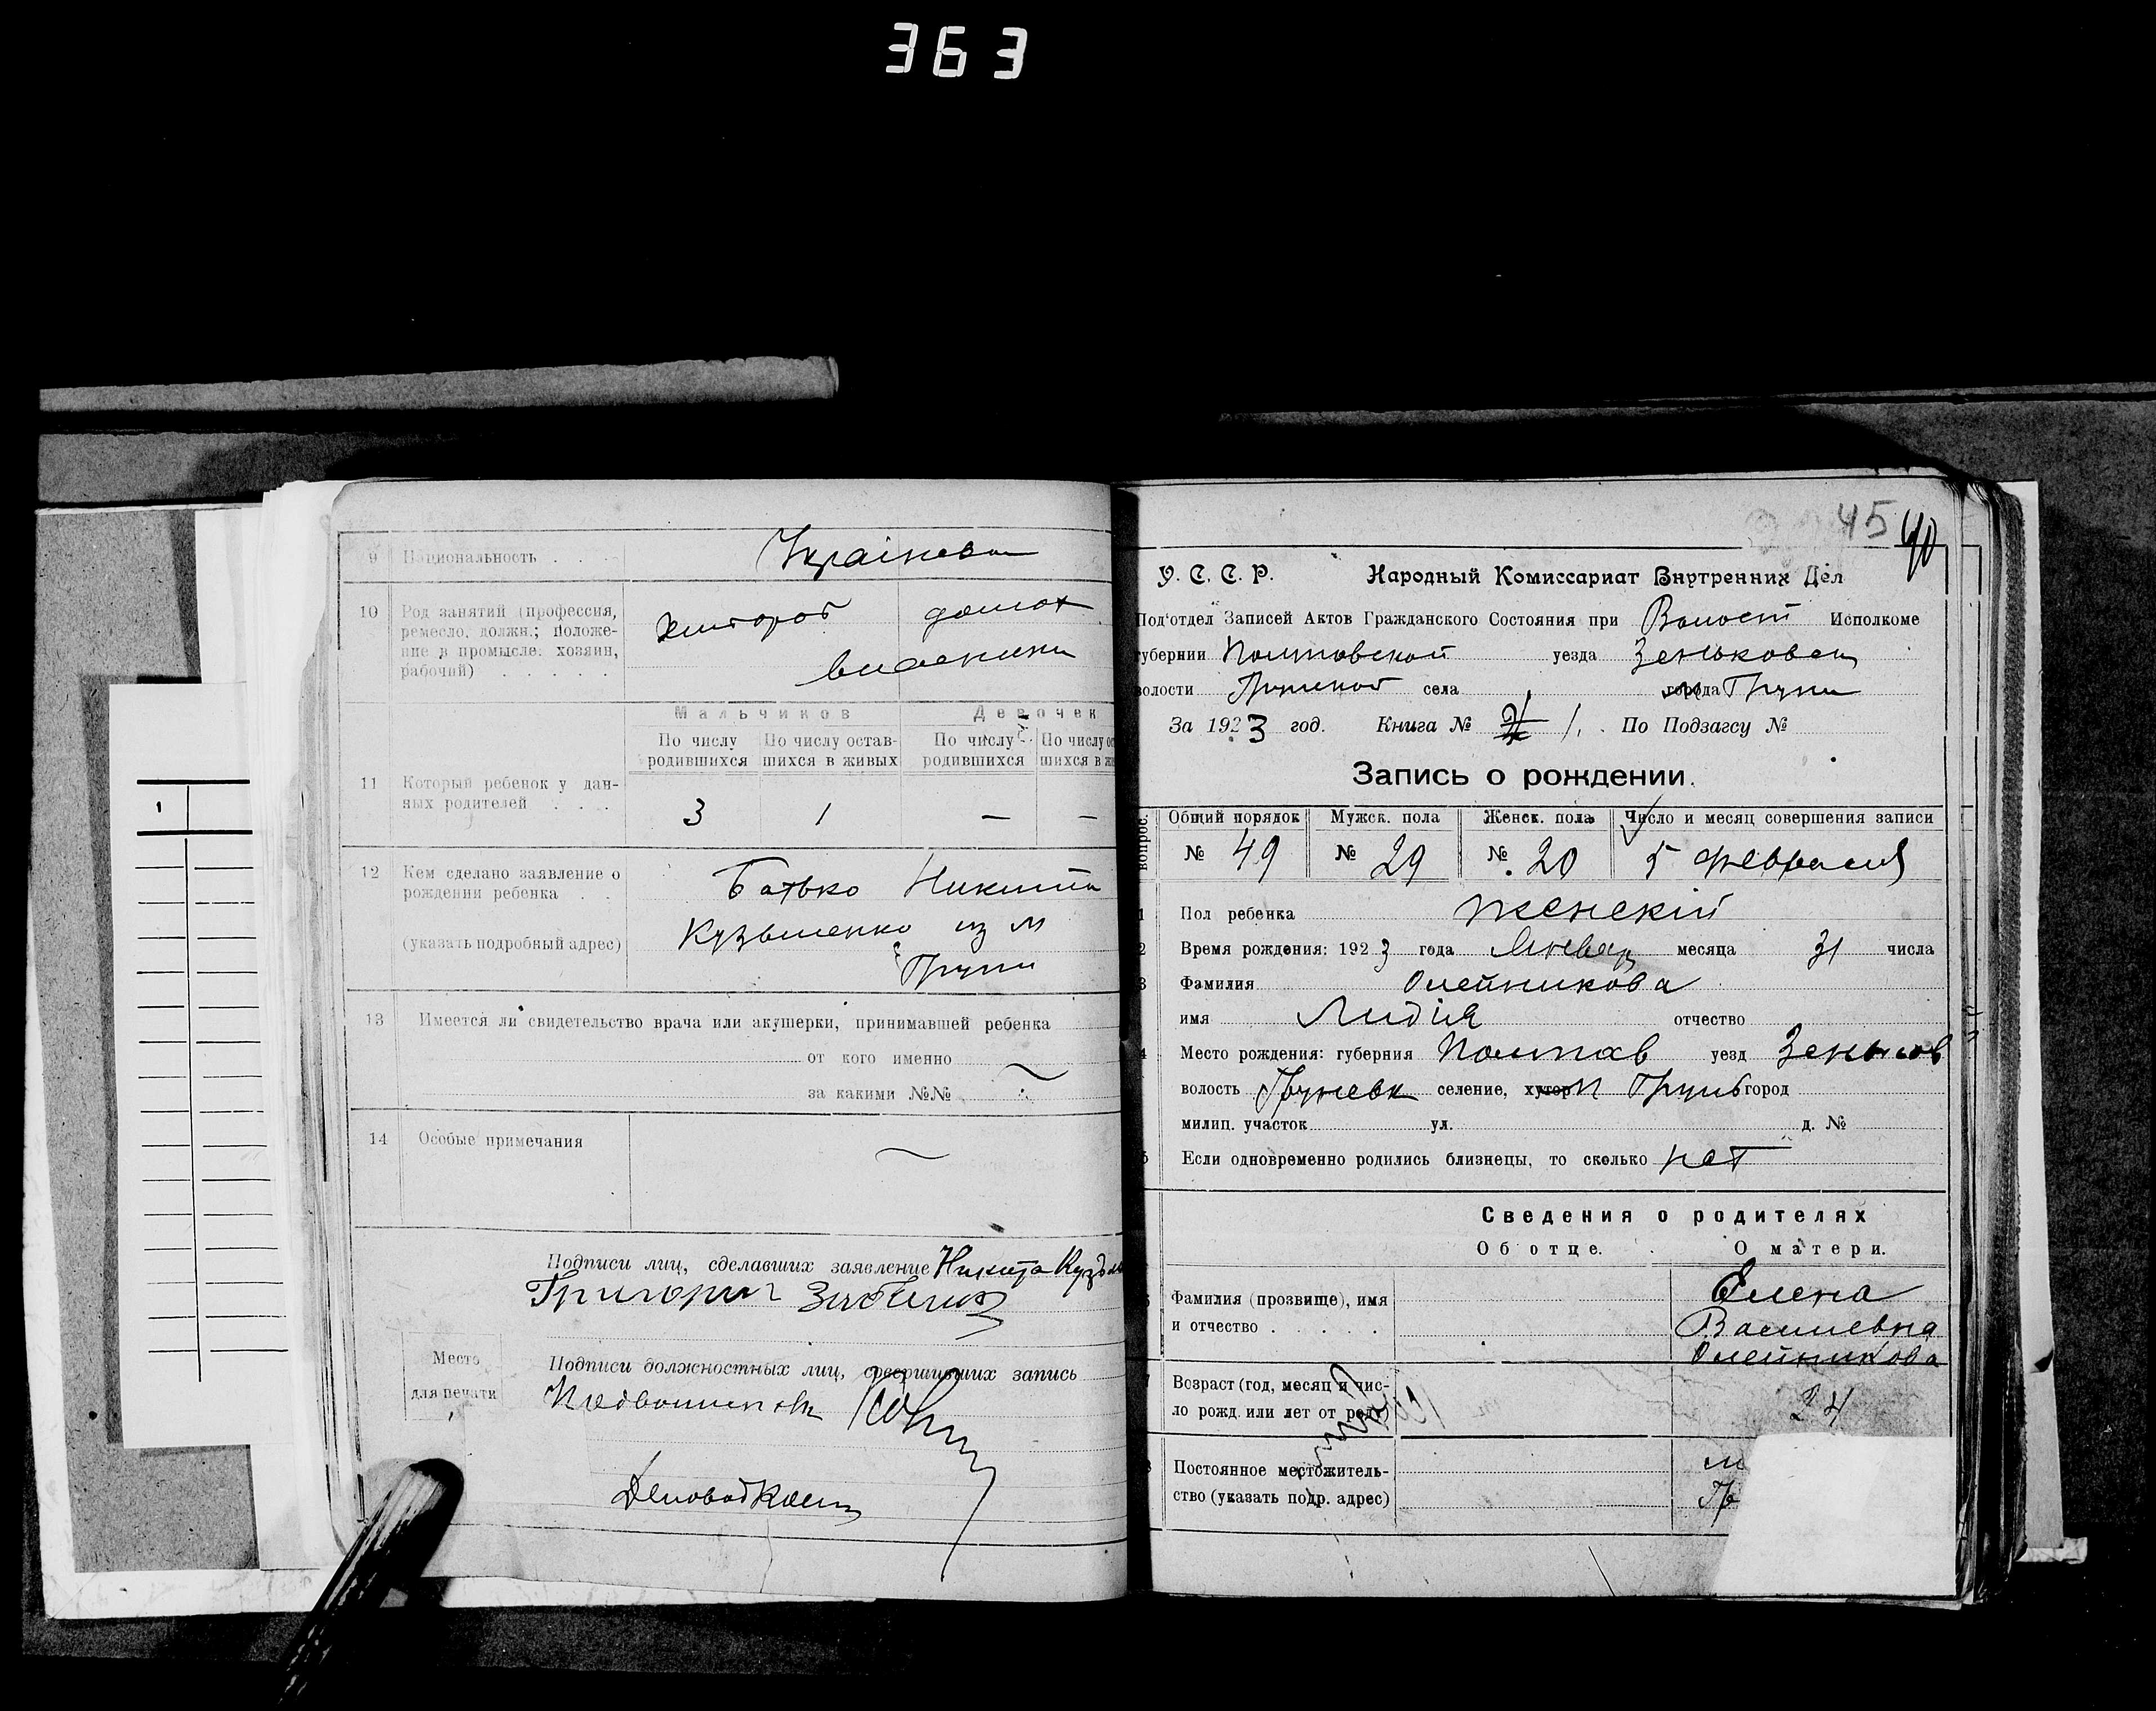 363
9 Национальность . . . Українська
10 Род занятий (профессия,
ремесло, должн.; положе-
ние в промысле: хозяин,
рабочий) . . . . .
Мальчиков Девочек
По числу
родившихся
По числу остав-
шихся в живых
По числу
родившихся
По числу ос
шихся в жи
11 Который ребенок у дан-
ных родителей . . .
3 1 — —
12 Кем сделано заявление о
рождении ребенка . .
(указать подробный адрес)
Батько Никита
Кузьменко из м
Груни
13 Имеется ли свидетельство врача или акушерки, принимавшей ребенка
от кого именно
за какими №№
14 Особые примечания
Подписи лиц, сделавших заявление Никита Кузьм
Григорий
Место
для печати
Подписи должностных лиц, совершивших запись
45 40
У. С. С. Р. Народный Комиссариат Внутренних Дел
Под'отдел Записей Актов Гражданского Состояния при Волост Исполкоме
губернии Полтавской уезда Зеньковск
волости села города м Груни
За 1923 год. Книга № 1. По Подзагсу №
Запись о рождении.
вопрос.
Общий порядок Мужск. пола Женск. пола Число и месяц совершения записи
№ 49 № 29 № 20 5 февраля
1 Пол ребенка женскій
2 Время рождения: 1923 года Январ месяца 31 числа
3 Фамилия Олейникова
имя Лидія отчество
4 Место рождения: губерния Полтав уезд Зеньков
волость Груневск селение, хутор м Грунь город
милиц. участок ул. д. №
5 Если одновременно родились близнецы, то сколько нет
Сведения о родителях
Об отце. О матери.
Фамилия (прозвище), имя
и отчество . . . . .
Елена
Василевна
Олейникова
Возраст (год, месяц и чис-
ло рожд. или лет от роду)
24
Постоянное местожитель-
ство (указать подр. адрес)
м
Гр